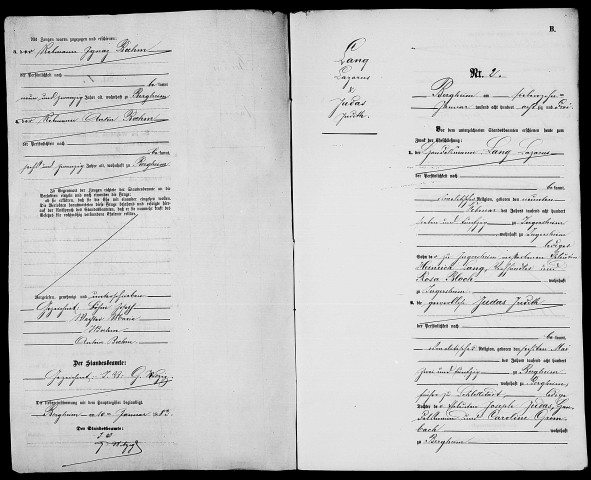 Als Zeugen waren zugezogen und erschienen:
Rebmann Ignaz Boehm
der Persönlichkeit nach
be kannt,
neun und zwanzig Jahre alt, wohnhaft zu Bergheim
Rebmann Anton Boehm
der Persönlichkeit nach
be kannt,
sechs und zwanzig Jahre alt, wohnhaft zu Bergheim
In Gegenwart der Zeugen richtete der Standesbeamte an die
Verlobten einzeln und nach einander die Frage:
ob sie erklären, daß sie die Ehe mit einander eingehen wollen.
Die Verlobten beantworteten diese Frage bejahend und erfolgte hier-
auf der Ausspruch des Standesbeamten, daß er sie nunmehr kraft des
Gesetzes für rechtmäßig verbundene Eheleute erkläre.
Vorgelesen, genehmigt und unterschrieben
Gezeichnet: Josef
Marie
Boehm
Anton Boehm
Der Standesbeamte:
Gezeichnet:
Die Uebereinstimmung mit dem Hauptregister beglaubigt.
Bergheim am 10ten Januar 1883
Der Standesbeamte:
B.
Lang
Lazarus
&
Judas
Judith
Nr. 2.
Bergheim am siebenzehn
Januar tausend acht hundert achtzig und drei
Vor dem unterzeichneten Standesbeamten erschienen heute zum
Zweck der Eheschließung:
1. der Handelsmann Lang Lazarus
der Persönlichkeit nach
be kannt,
israelitischer Religion, geboren den neunten
Februar des Jahres tausend acht hundert
sieben und fünfzig zu Ingersheim
wohnhaft zu Ingersheim
lediger
Sohn des zu Ingersheim verstorbenen
Heinrich Lang, und
Rosa Bloch wohnhaft
zu Ingersheim
2. die gewerblose Judas Judith
der Persönlichkeit nach
be kannt,
israelitischer Religion, geboren den sechsten Mai
des Jahres tausend acht hundert
zwei und fünfzig zu Bergheim
wohnhaft zu Bergheim,
früher zu Schlettstadt, ledige
Tochter der Joseph Judas,
und Caroline Grum-
bach wohnhaft
zu Bergheim